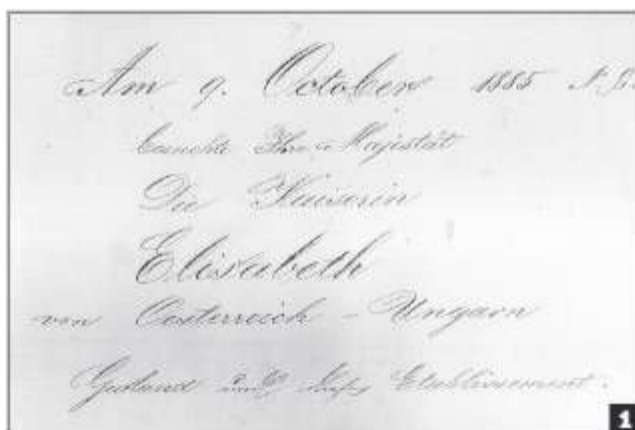 Am 9. October 1885 N. S.
besuchte Ihre Majestät
Die Kaiserin
Elisabeth
von Oesterreich - Ungarn
und dieses Etablissement.
1